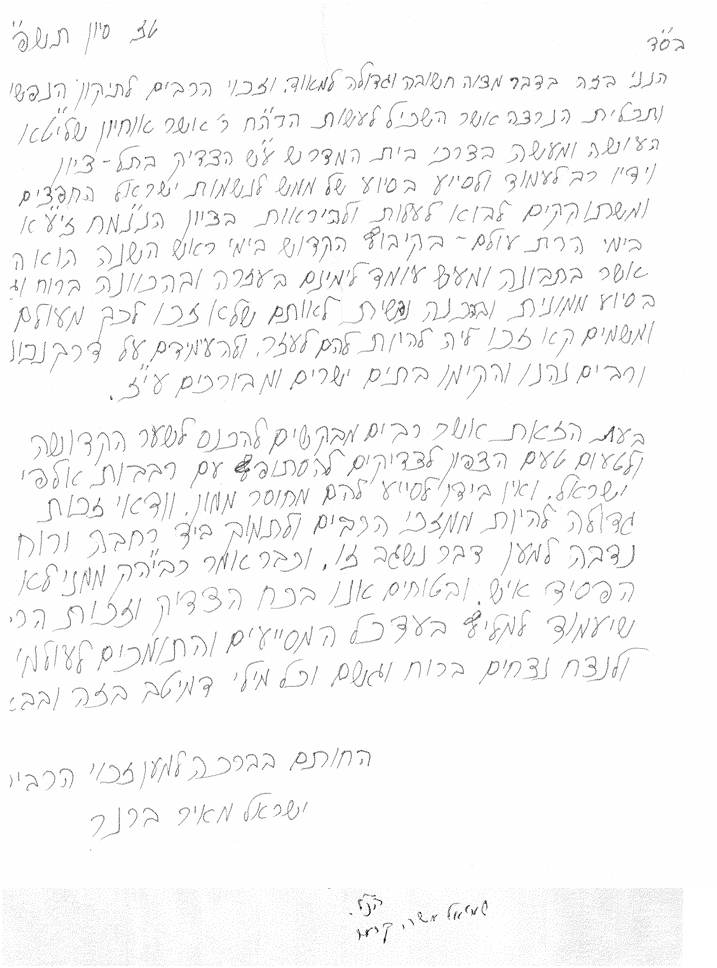 בס"ד
טז סיון תשפ"
הנני בזה בדבר מצוה חשובה וגדולה למאוד, וזכוי הרבים לתיקון הנפשי
ותכלית הנרצה אשר השכיל לעשות הרה"ח ר' אשר אוחיון שליט"א
העושה ומעשה בצרכי בית המדרש ע"ש הצדיק בתל-ציון
וידיו רב לעמוד ולסייע בסיוע של ממש לנשמות ישראל החפצים
ומשתוקקים לבוא לעלות ולהיראות בציון הננמ"ח זי"ע"א
בימי הרת עולם - בקיבוץ הקדוש בימי ראש השנה הוא ה
אשר בתבונה ומעש עומד לימינם בעזרה ובהכוונה ברוח וג
בסיוע ממונית ובהכנה נפשית לאותם שלא זכו לכך מעולם
ומשמים קא זכו ליה להיות להם לעזר, ולהעמידם על דרך נכונ
ורבים נהנו והקימו בתים ישרים ומבורכים עי"ז.
בעת הזאת אשר רבים מבקשים להכנס לשער הקדושה
ולטעום טעם הצפון לצדיקים להסתופף עם רבבות אלפי
ישראל, ואין בידן לסייע להם מחוסר ממון, וודאי זכות
גדולה להיות ממזכי הרבים ולתמוך ביד רחבה ורוח
נדבה למען דבר נשגב זו, וכבר אמר רבי"הק ממני לא
הפסיד איש, ובטוחים אנו בכח הצדיק וזכות הרי
שיעמוד למליץ בעד כל המסייעים והתומכים לעולמי
ולנצח נצחים ברוח וגשם וכל מילי דמיטב בזה ובבא
החותם בברכה למען זכוי הרבי
ישראל מאיר ברנר
הנ"ל.
שמואל משה קרמר